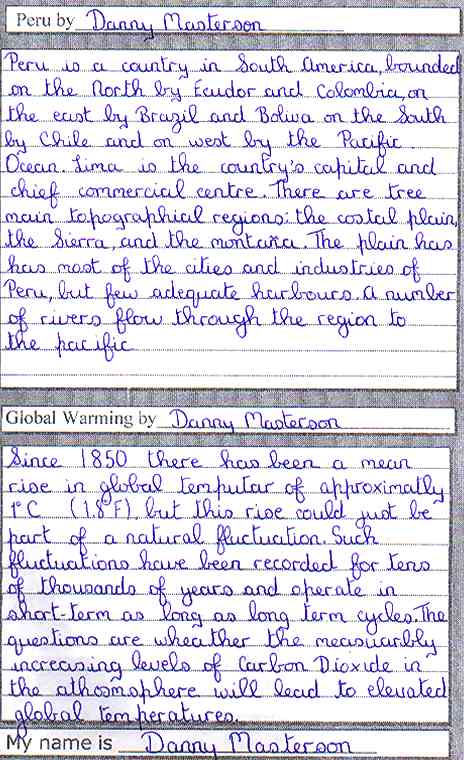 Peru by Danny Masterson
Peru is a country in South America, bounded
on the North by Ecudor and Colombia, on
the east by Brazil and Boliva on the South
by Chile and on west by the Pacific
Ocean. Lima is the country's capital and
chief commercial centre. There are tree
main topographical regions: the costal plain,
the Sierra, and the montaña. The plain has
has most of the cities and industries of
Peru, but few adequate harbours. A number
of rivers flow through the region to
the pacific
Global Warming by Danny Masterson
Since 1850 there has been a mean
rise in global temputar of approximatly
1°C (1.8°F), but this rise could just be
part of a natural fluctuation. Such
fluctuations have been recorded for tens
of thousands of years and operate in
short-term as long as long term cycles. The
questions are wheather the measuarbly
increasing levels of Carbon Dioxide in
the athosmophere will lead to elevated
global temperatures.
My name is Danny Masterson